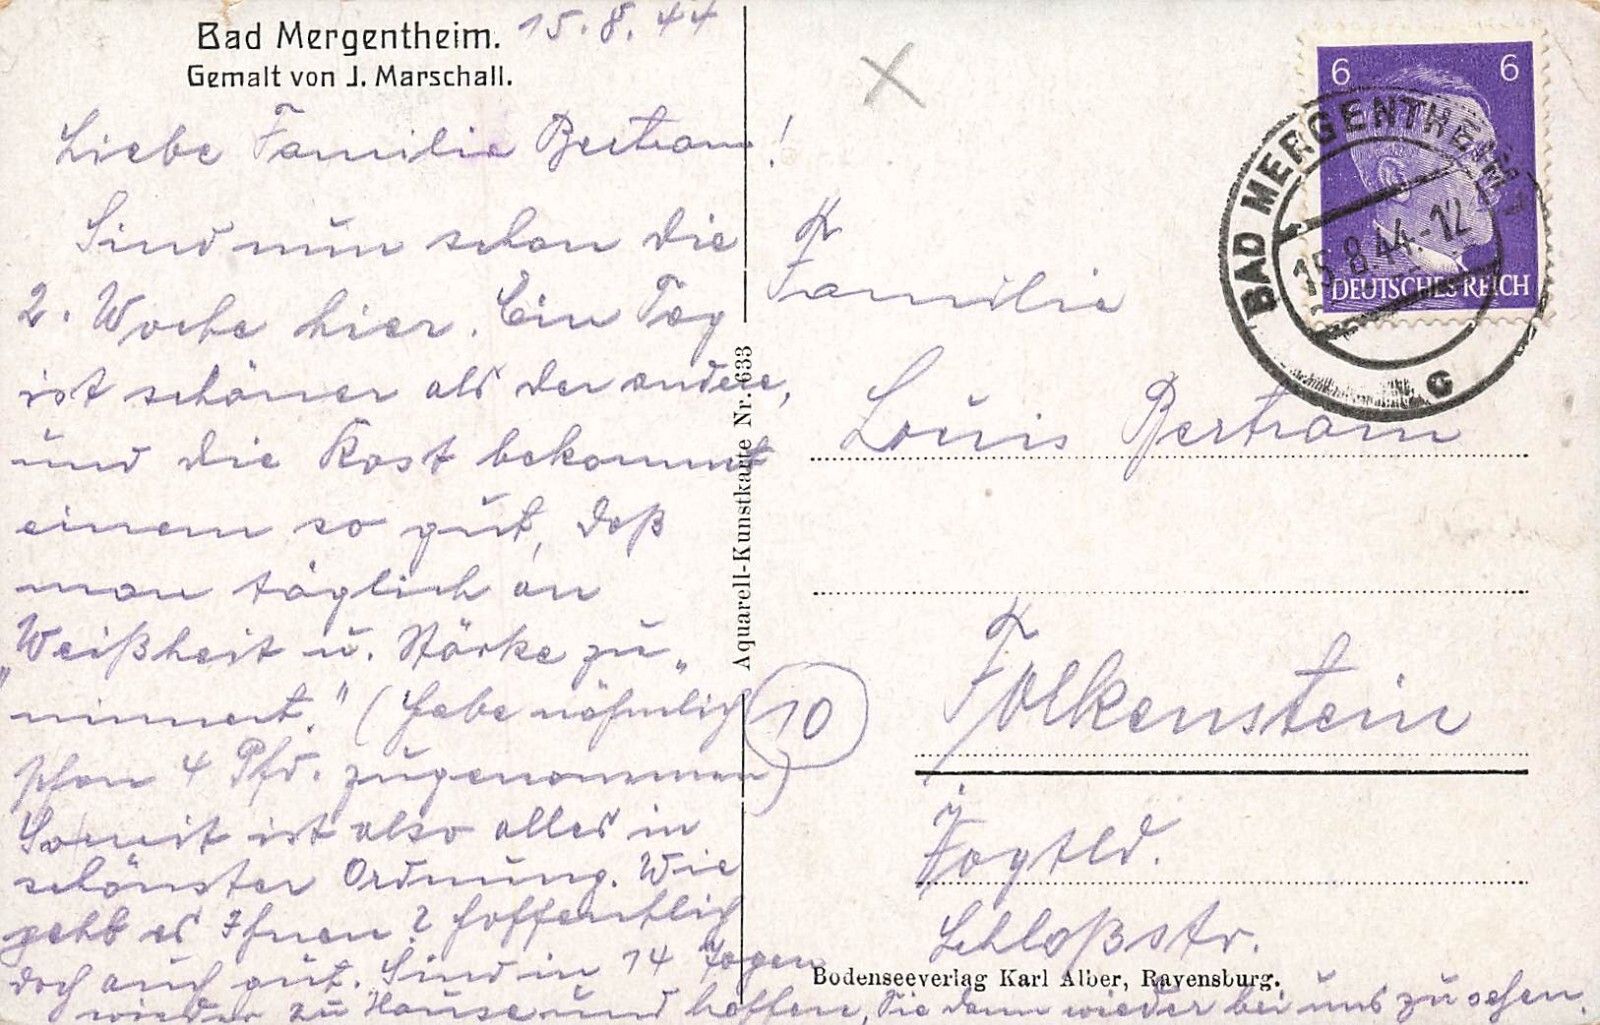 Bad Mergentheim. 15.8.44
Gemalt von J. Marschall.
Liebe Familie Bertram!
Sind nun schon die
2. Woche hier. Ein Tag
ist schöner als der andere,
und die Kost bekommt
einem so gut, daß
man täglich an
"Weißheit u. Stärke zu"
nimmt." (Habe nähmlich
schon 4 Pfd. zugenommen)
Somit ist also alles in
schönster Ordnung. Wie
geht es Ihnen? Hoffentlich
doch auch gut. Sind in 14 Tagen
wieder zu Hause und hoffen, Sie dann wieder bei uns zu sehen.
Aquarell-Kunstkarte Nr. 633
6 6
DEUTSCHES REICH
BAD MERGENTHEIM
15.8.44.-12
c
Familie
Louis Bertram
10
Falkenstein
Vogtld.
Schloßstr.
Bodenseeverlag Karl Alber, Ravensburg.